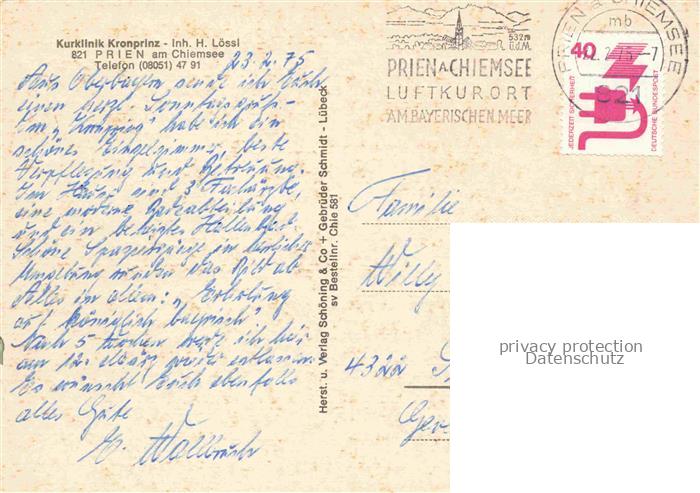 Kurklinik Kronprinz - Inh. H. Lössl
821 PRIEN am Chiemsee
Telefon (08051) 47 91
23.2.75
Aus Oberbayern sende ich Euch
einen herzl. Sonntagsgruß.
Im "Kronprinz" hab ich ein
schönes Einzelzimmer, beste
Verpflegung und Betreuung.
Im Hause sind 3 Fachärzte,
eine moderne Badeabteilung
und ein beheiztes Hallenbad.
Schöne Spaziergänge in herrlicher
Umgebung runden das Bild ab
Alles in allem: "Erholung
auf königlich bayrisch"
Nach 5 Wochen werde ich hier
am 12. März wieder entlassen.
Es wünscht Euch ebenfalls
alles Gute
E. Wallbruch
Herst. u. Verlag Schöning & Co + Gebrüder Schmidt - Lübeck
sv Bestellnr. Chie 581
532m
ü.d.M.
PRIEN A CHIEMSEE
LUFTKURORT
AM BAYERISCHEN MEER
PRIEN a CHIEMSEE
mb
-7
821
40
JEDERZEIT SICHERHEIT
DEUTSCHE BUNDESPOST
Familie
Willy
4322
privacy protection
Datenschutz